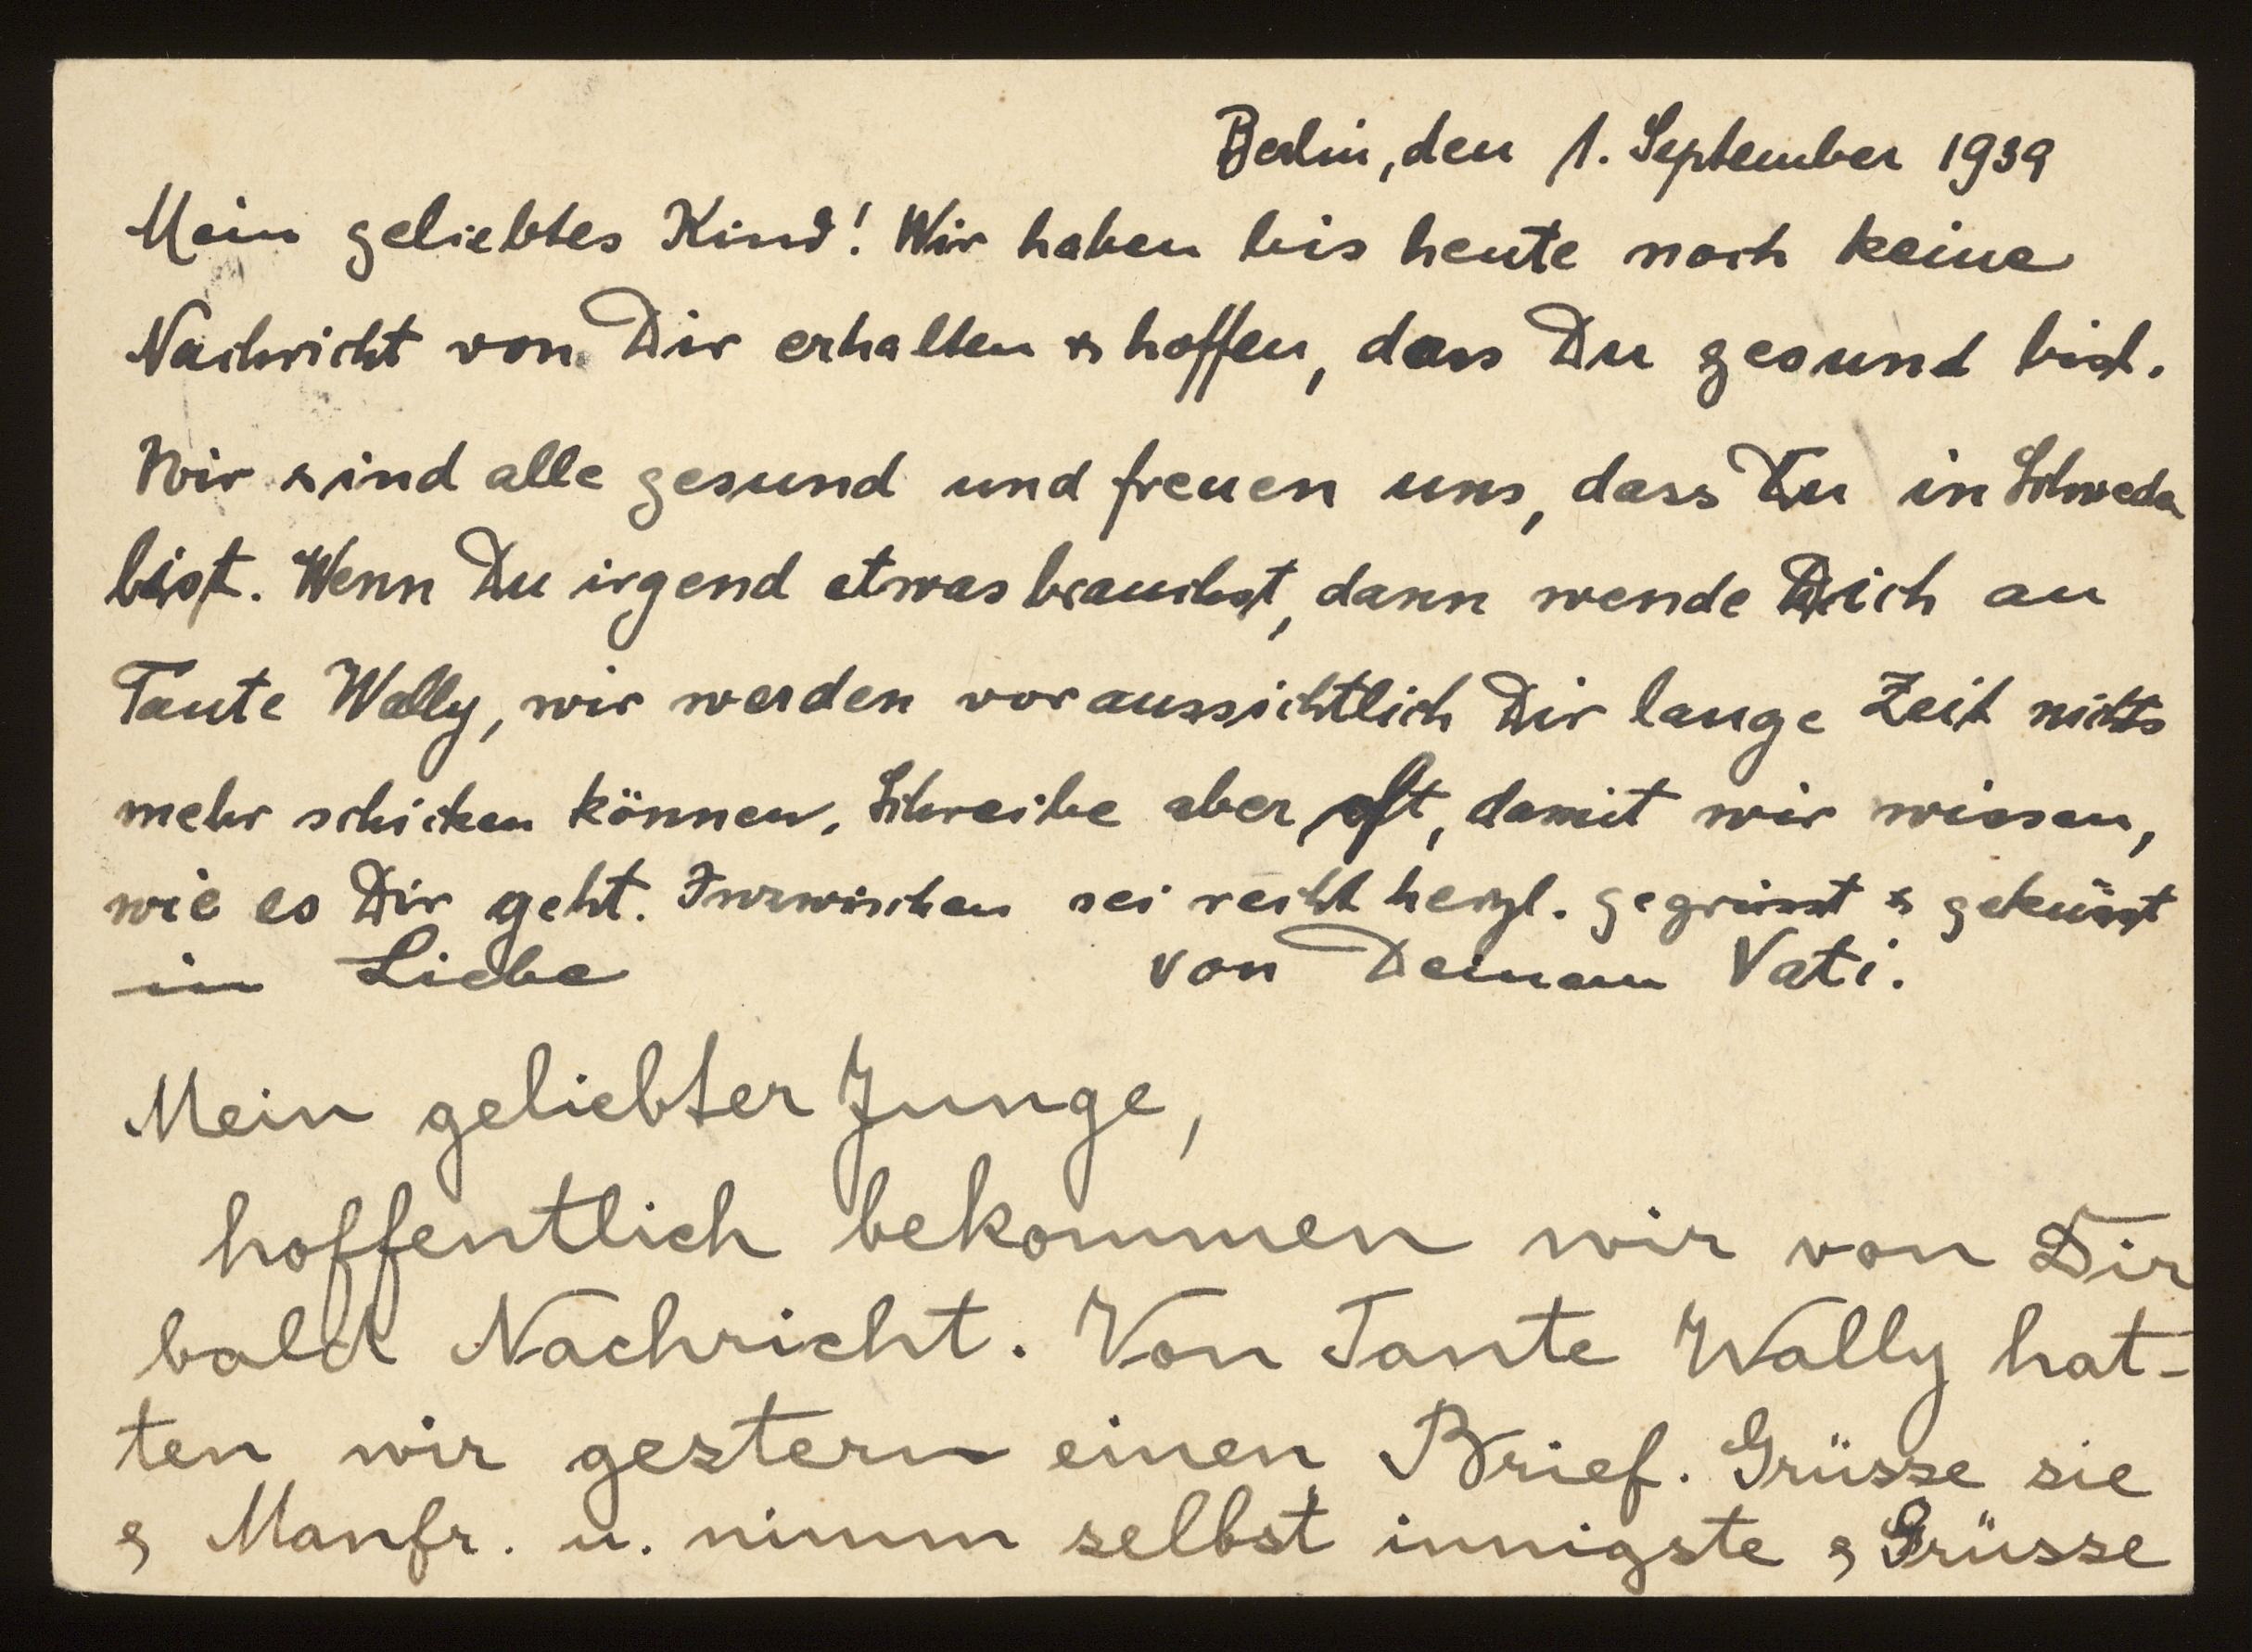 Berlin, den 1. September 1939
Mein geliebtes Kind! Wir haben bis heute noch keine
Nachricht von Dir erhalten & hoffen, dass Du gesund bist.
Wir sind alle gesund und freuen uns, dass Du in Schweden
bist. Wenn Du irgend etwas brauchst, dann wende Dich an
Tante Wally, wir werden voraussichtlich Dir lange Zeit nichts
mehr schicken können. Schreibe aber oft, damit wir wissen,
wie es Dir geht. Inzwischen sei recht herzl. gegrüsst & geküsst
in Liebe von Deinem Vati.
Mein geliebter Junge,
hoffentlich bekommen wir von Dir
bald Nachricht. Von Tante Wally hat-
ten wir gestern einen Brief. Grüsse sie
& Manfr. u. nimm selbst innigste & Grüsse